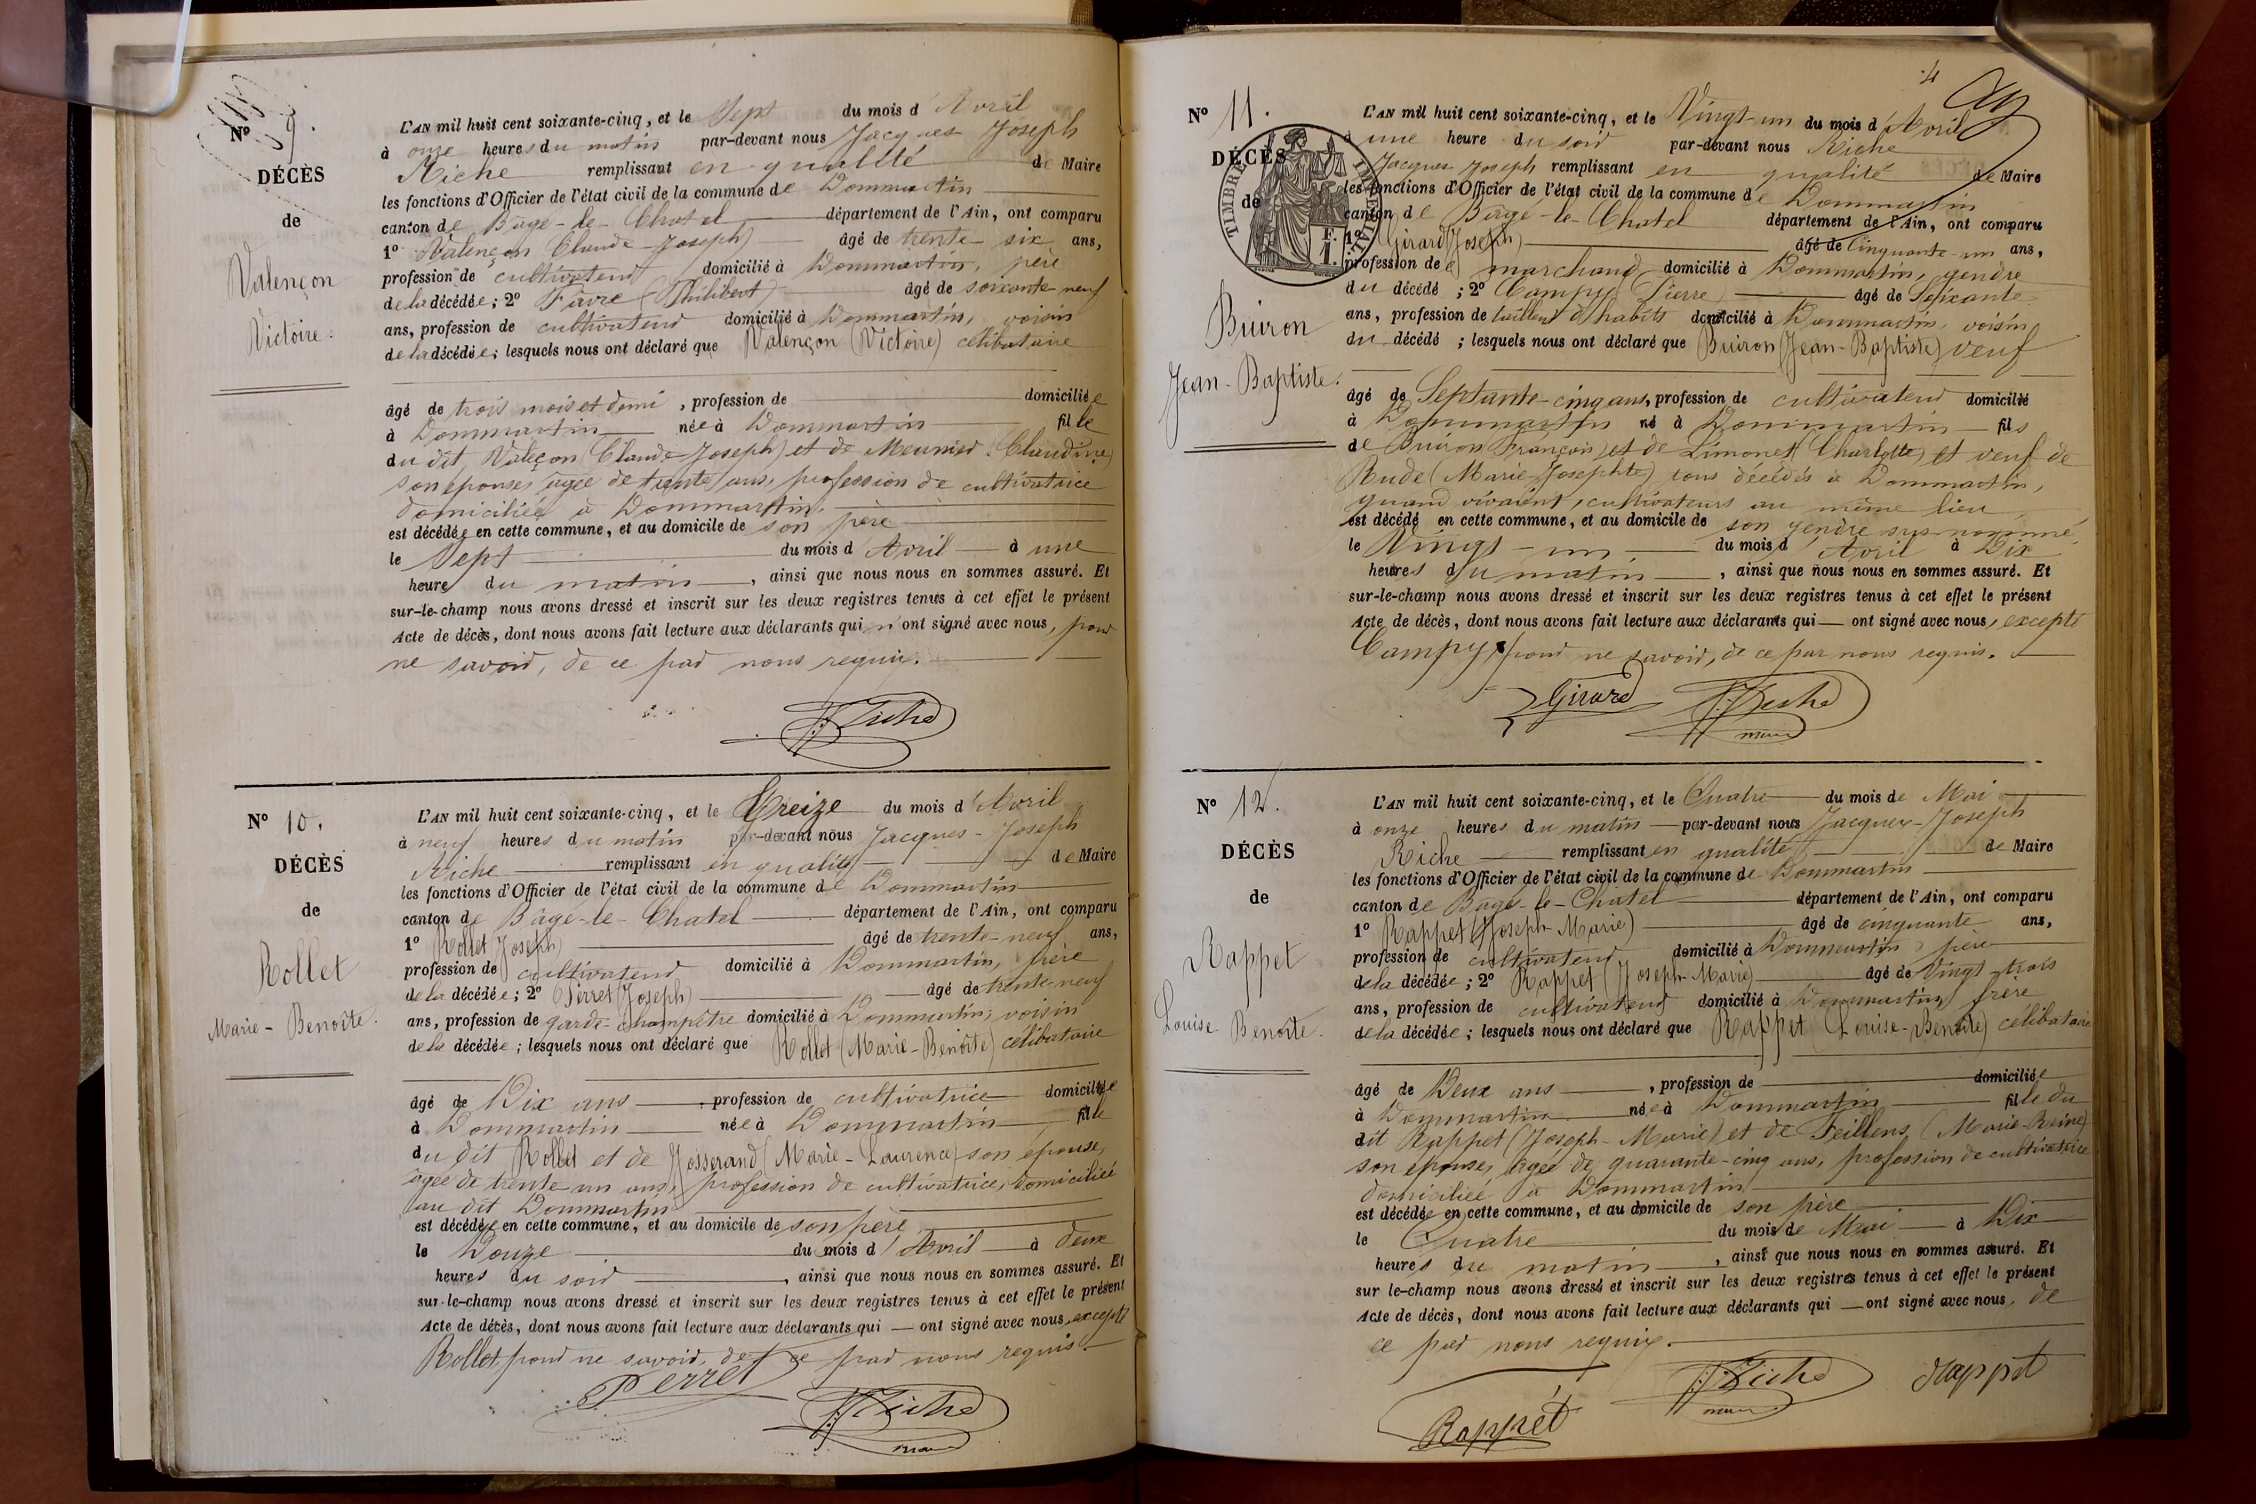 Nº 9.
DÉCÈS
de
Valençon
Victoire.
L'AN mil huit cent soixante-cinq, et le Sept du mois d'Avril
à onze heures du matin par-devant nous Jacques Joseph
Riche remplissant en qualité de Maire
les fonctions d'Officier de l'état civil de la commune de Dommartin
canton de Bâgé-le-Chatel département de l'Ain, ont comparu
1º Valençon (Claude-Joseph) âgé de trente-six ans,
profession de cultivateur domicilié à Dommartin, père
de la décédée; 2º Fàvre (Philibert) âgé de soixante neuf
ans, profession de cultivateur domicilié à Dommartin, voisin
de la décédée; lesquels nous ont déclaré que Valençon (Victoire) célibataire
âgé de trois mois et demi, profession de domiciliée
à Dommartin née à Dommartin fille
du dit Valeçon (Claude-Joseph) et de Meunier (Claudine)
son épouse, agée de trente ans, profession de cultivatrice
domiciliée à Dommartin.
est décédée en cette commune, et au domicile de son père
le Sept du mois d'Avril à une
heure du matin, ainsi que nous nous en sommes assuré. Et
sur-le-champ nous avons dressé et inscrit sur les deux registres tenus à cet effet le présent
Acte de décès, dont nous avons fait lecture aux déclarants qui n'ont signé avec nous, pour
ne savoir, de ce par nous requis.
J. Riche
Nº 10.
DÉCÈS
de
Rollet
Marie-Benoîte.
L'AN mil huit cent soixante-cinq, et le Treize du mois d'Avril
à neuf heures du matin par-devant nous Jacques-Joseph
Riche remplissant en qualité de Maire
les fonctions d'Officier de l'état civil de la commune de Dommartin
canton de Bâgé-le-Chatel département de l'Ain, ont comparu
1º Rollet (Joseph) âgé de trente-neuf ans,
profession de cultivateur domicilié à Dommartin, père
de la décédée; 2º Perret (Joseph) âgé de trente neuf
ans, profession de garde-champêtre domicilié à Dommartin, voisin
de la décédée; lesquels nous ont déclaré que Rollet (Marie-Benoîte) célibataire
âgé de Dix ans profession de cultivatrice domiciliée
à Dommartin née à Dommartin fille
du dit Rollet et de Josserand (Marie-Laurence) son épouse,
agée de trente un ans, profession de cultivatrice, domiciliée
au dit Dommartin
est décédée en cette commune, et au domicile de son père
le Douze du mois d'Avril à deux
heures du soir, ainsi que nous nous en sommes assuré. Et
sur-le-champ nous avons dressé et inscrit sur les deux registres tenus à cet effet le présent
Acte de décès, dont nous avons fait lecture aux déclarants qui ont signé avec nous, excepté
Rollet pour ne savoir, de ce par nous requis.
Perret
J. Riche
maire
4
Nº 11.
DÉCÈS
de
TIMBRE IMPÉRIAL
Buiron
Jean-Baptiste.
L'AN mil huit cent soixante-cinq, et le Vingt-un du mois d'Avril
à une heure du soir par-devant nous Riche
Jacques Joseph remplissant en qualité de Maire
les fonctions d'Officier de l'état civil de la commune de Dommartin
canton de Bâgé-le-Chatel département de l'Ain, ont comparu
1º Girard (Joseph) âgé de Cinquante-un ans,
profession de marchand domicilié à Dommartin, gendre
du décédé; 2º Campy (Pierre) âgé de Soixante
ans, profession de tailleur d'habits domicilié à Dommartin, voisin
du décédé; lesquels nous ont déclaré que Buiron (Jean-Baptiste) veuf
âgé de Septante-cinq ans, profession de cultivateur domicilié
à Dommartin né à Dommartin fils
de Buiron (François) et de Limonet (Charlotte) et veuf de
Rude (Marie-Josephte) tous décédés à Dommartin,
quand vivaient, cultivateurs au même lieu
est décédé en cette commune, et au domicile de son gendre sus-nommé
le Vingt-un du mois d'Avril à Dix
heures du matin, ainsi que nous nous en sommes assuré. Et
sur-le-champ nous avons dressé et inscrit sur les deux registres tenus à cet effet le présent
Acte de décès, dont nous avons fait lecture aux déclarants qui ont signé avec nous, excepté
Campy, pour ne savoir, de ce par nous requis.
Girard
J. Riche
maire
Nº 12.
DÉCÈS
de
Rappet
Louise Benoîte.
L'AN mil huit cent soixante-cinq, et le Quatre du mois de Mai
à onze heures du matin par-devant nous Jacques-Joseph
Riche remplissant en qualité de Maire
les fonctions d'Officier de l'état civil de la commune de Dommartin
canton de Bâgé-le-Chatel département de l'Ain, ont comparu
1º Rappet (Joseph-Marie) âgé de cinquante ans,
profession de cultivateur domicilié à Dommartin, père
de la décédée; 2º Rappet (Joseph-Marie) âgé de Vingt-trois
ans, profession de cultivateur domicilié à Dommartin, frère
de la décédée; lesquels nous ont déclaré que Rappet (Louise-Benoîte) célibataire
âgé de Deux ans, profession de domiciliée
à Dommartin née à Dommartin fille du
dit Rappet (Joseph-Marie) et de Feillens (Marie-Reine)
son épouse, agée de quarante-cinq ans, profession de cultivatrice
domiciliée à Dommartin
est décédée en cette commune, et au domicile de son père
le Quatre du mois de Mai à Dix
heures du matin, ainsi que nous nous en sommes assuré. Et
sur le-champ nous avons dressé et inscrit sur les deux registres tenus à cet effet le présent
Acte de décès, dont nous avons fait lecture aux déclarants qui ont signé avec nous, de
ce par nous requis.
Rappet
J. Riche
maire
Rappet